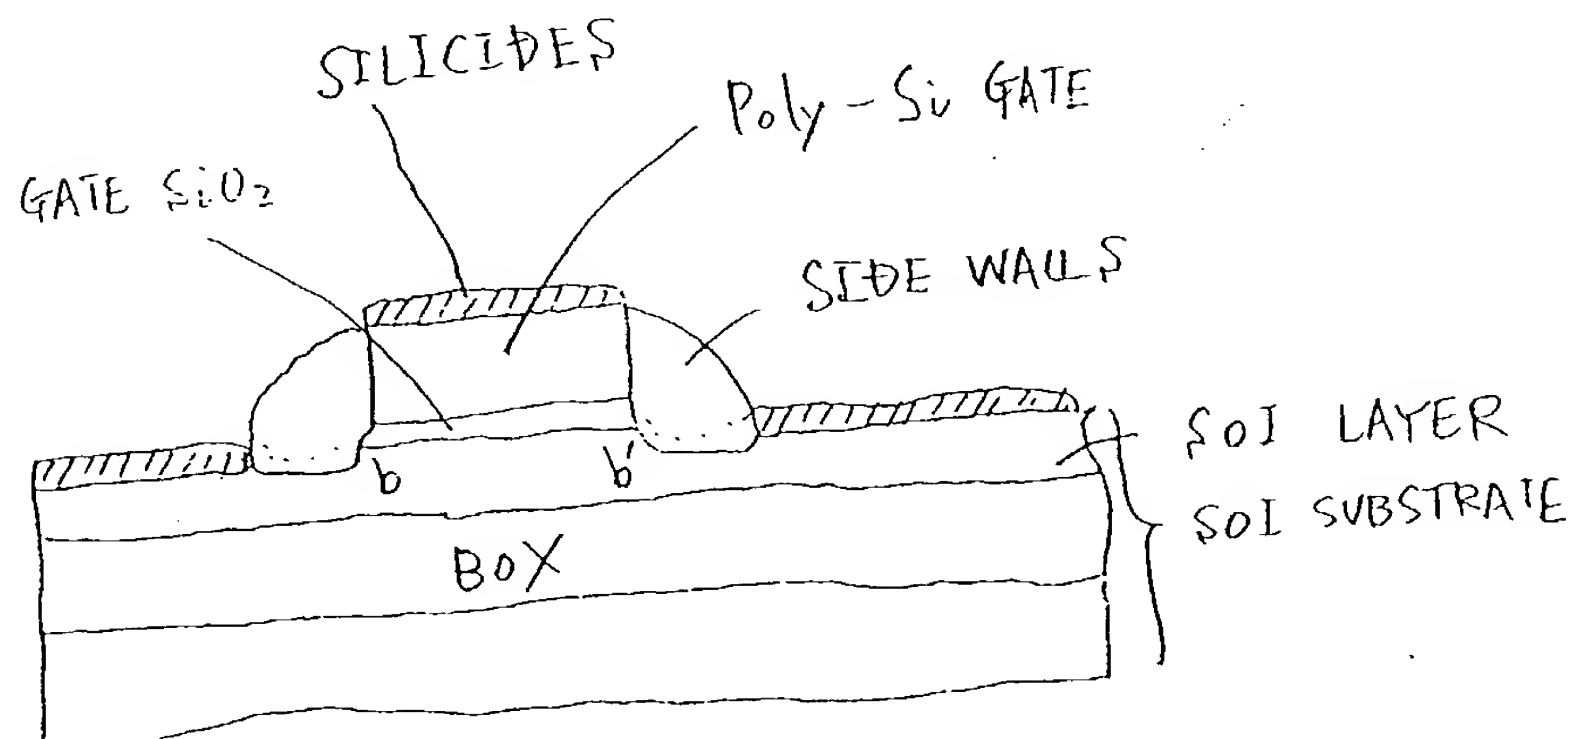 SILICIDES
Poly-Si GATE
GATE SiO2
SIDE WALLS
SOI LAYER
b b'
SOI SUBSTRATE
BOX